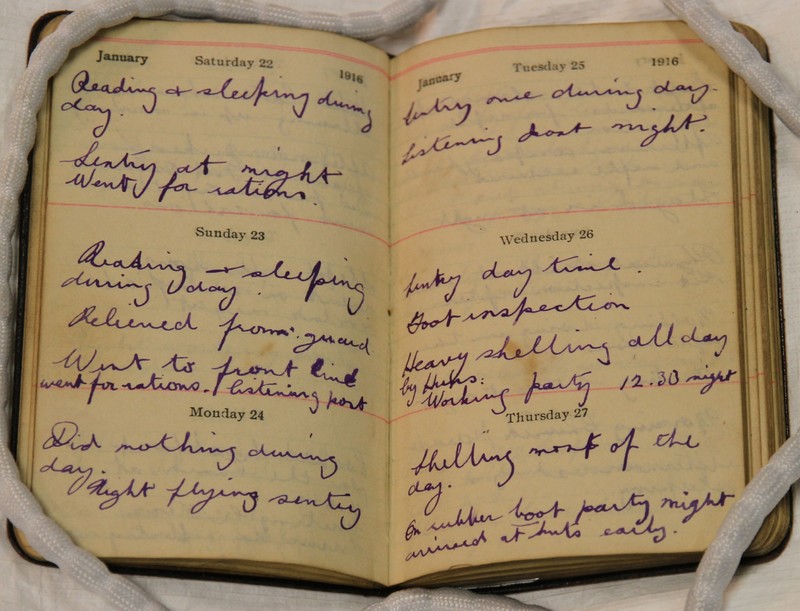 January Saturday 22 1916
Reading & sleeping during
day.
Sentry at night
Went for rations.
Sunday 23
Reading & sleeping
during day.
Relieved from guard.
Went to front line
went for rations. listening post
Monday 24
Did nothing during
day.
Night flying sentry
January Tuesday 25 1916
Sentry once during day.
Listening post night.
Wednesday 26
Sentry day time.
Foot inspection
Heavy shelling all day
by Huns.
Working party 12.30 night
Thursday 27
Shelling most of the
day.
On rubber boot party night
arrived at huts early.